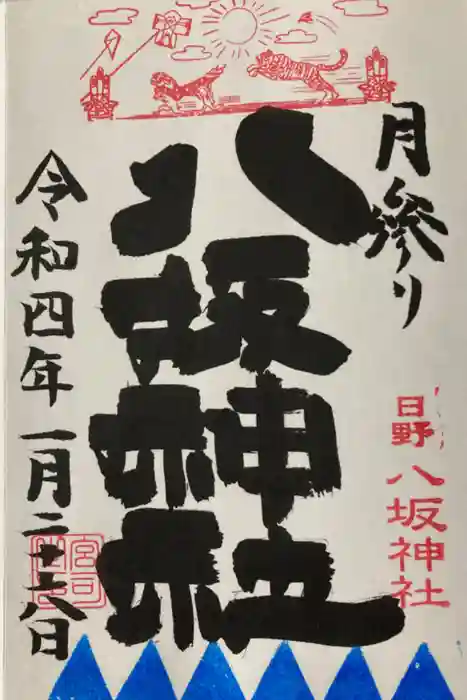 月参り
日野
八坂神社
八坂神社
令和四年一月二十八日